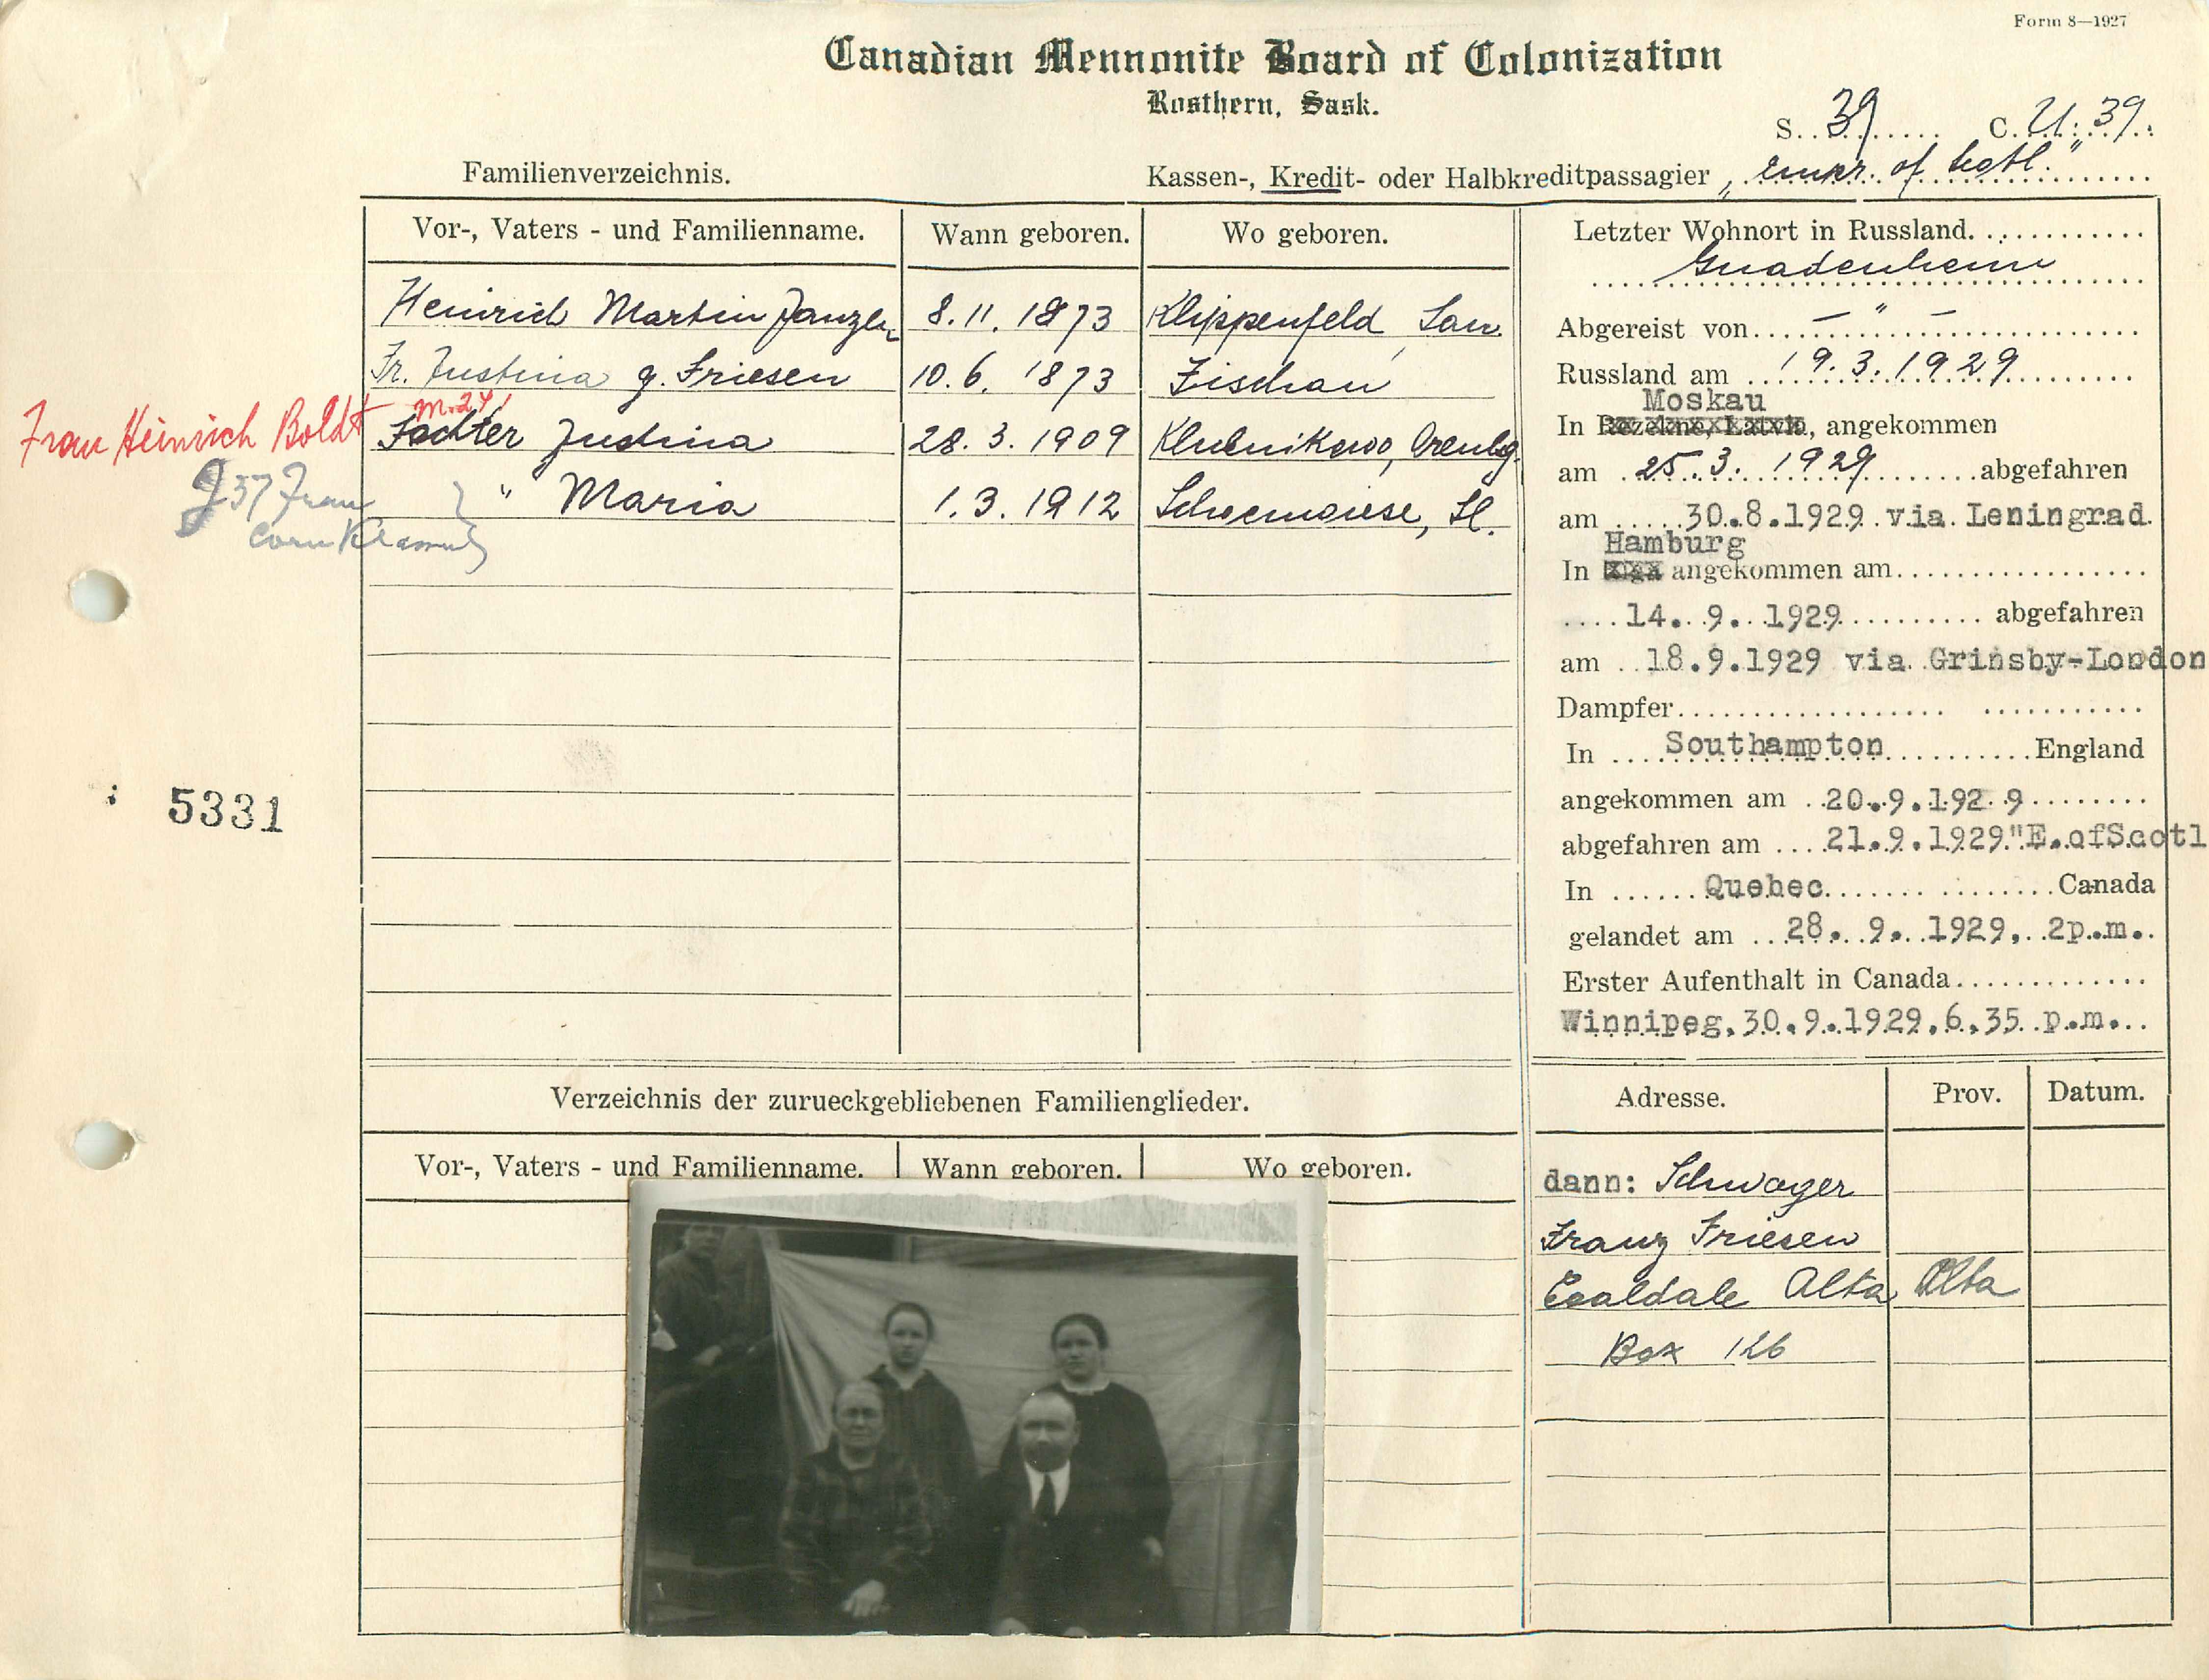 Form 8—1927
Canadian Mennonite Board of Colonization
Rosthern, Sask.
S. 39 C. U. 39.
Familienverzeichnis.
Kassen-, Kredit- oder Halbkreditpassagier „Empr. of Scotl."
Vor-, Vaters - und Familienname. Wann geboren. Wo geboren.
Heinrich Martin Janzen 8.11.1873 Klippenfeld, Saw.
Fr. Justina g. Friesen 10.6.1873 Tischau
m. 24
Frau Heinrich Boldt
Tochter Justina 28.3.1909 Klubnikowo, Orenbg.
" Maria 1.3.1912 Sl.
J37 Frau
Corn
5331
Letzter Wohnort in Russland.
Gnadenheim
Abgereist von — " —
Russland am 19.3.1929
Moskau
In Rezekne, Latvia, angekommen
am 25.3.1929 abgefahren
am 30.8.1929 via Leningrad
Hamburg
In angekommen am
14. 9. 1929 abgefahren
am 18.9.1929 via Grinsby-London
Dampfer
In Southampton England
angekommen am 20.9.192 9
abgefahren am 21.9.1929"E.ofScotl
In Quebec Canada
gelandet am 28. 9. 1929, 2p.m.
Erster Aufenthalt in Canada
Winnipeg,30.9.1929,6,35 p.m.
Verzeichnis der zurueckgebliebenen Familienglieder.
Vor-, Vaters - und Familienname. Wann geboren. Wo geboren.
Adresse. Prov. Datum.
dann: Schwager
Franz Friesen
Coaldale Alta Alta
Box 126